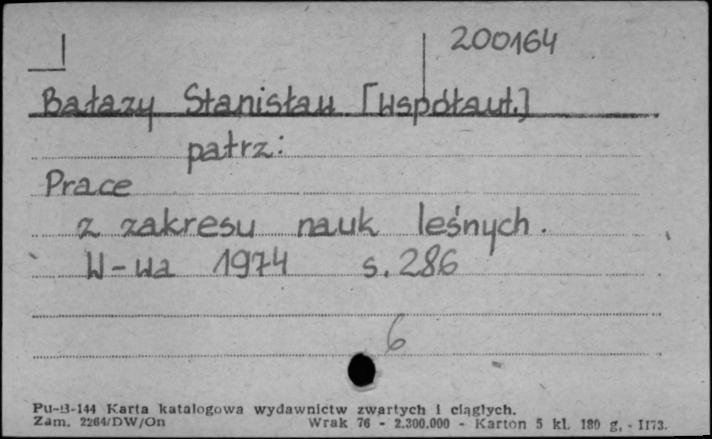 200164
Bałazy Stanisław [współaut.]
patrz:
Prace
z zakresu nauk leśnych.
W-wa 1974 s. 286
6
Pu-B-144 Karta katalogowa wydawnictw zwartych i ciągłych.
Zam. 2264/DW/On Wrak 76 - 2.300.000 - Karton 5 kl. 180 g. - II73.